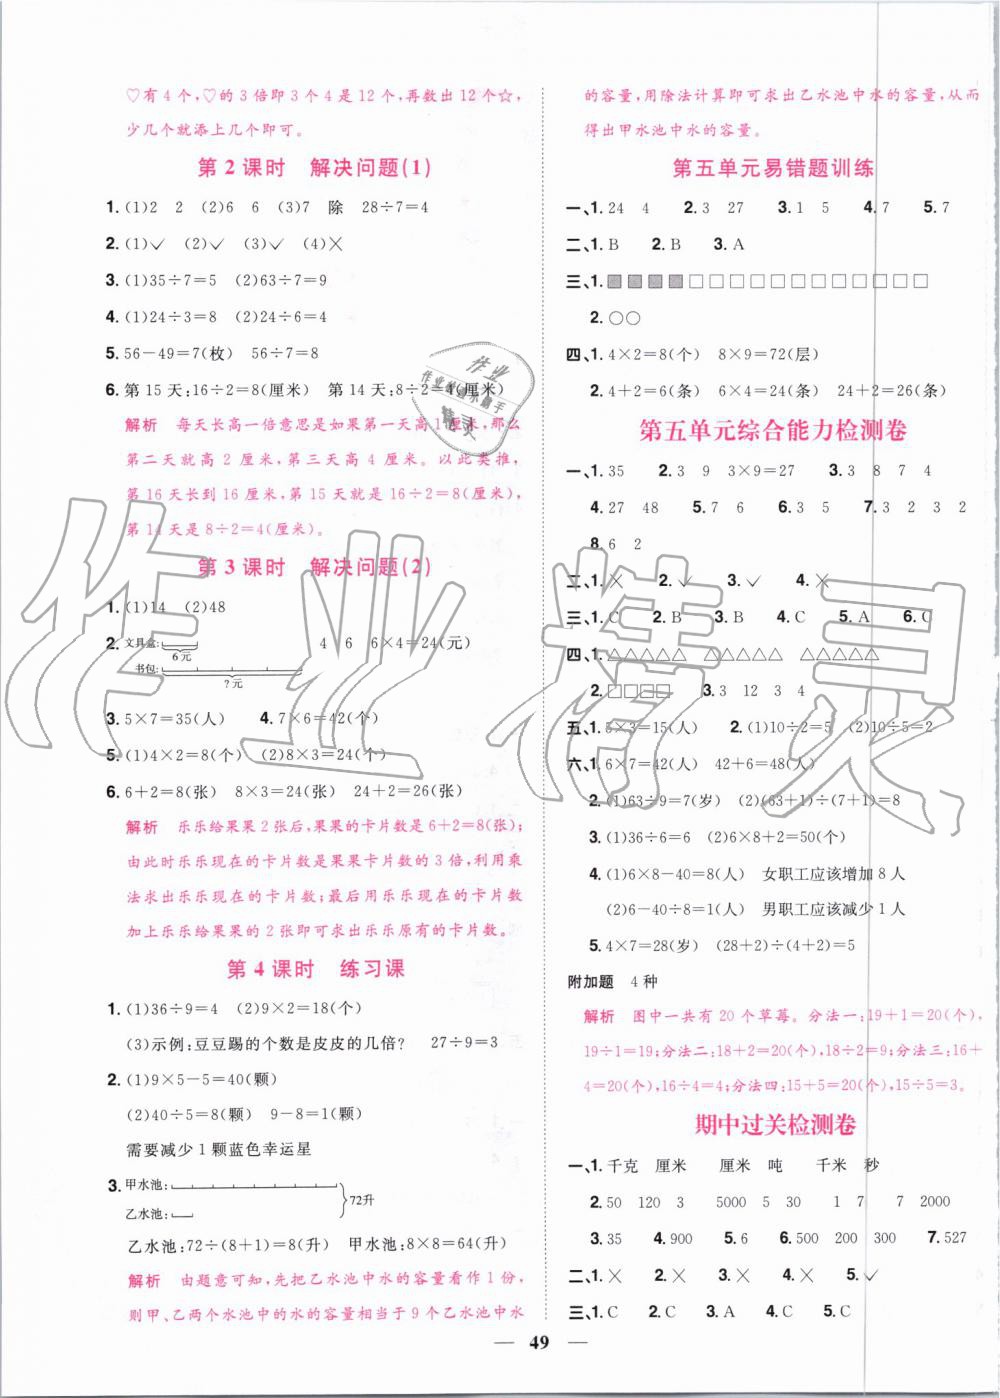 ♡有4个,♡的3倍即3个4是12个,再数出12个☆,
少几个就添上几个即可。
第2课时 解决问题(1)
1. (1)2 2 (2)6 6 (3)7 除 28÷7=4
2. (1)✓ (2)✓ (3)✓ (4)×
3. (1)35÷7=5 (2)63÷7=9
4. (1)24÷3=8 (2)24÷6=4
5. 56-49=7(枚) 56÷7=8
6. 第15天:16÷2=8(厘米) 第14天:8÷2=4(厘米)
解析 每天长高一倍意思是如果第一天高1厘米,那么
第二天就高2厘米,第三天高4厘米。以此类推,
第16天长到16厘米,第15天就是16÷2=8(厘米),
第14天是8÷2=4(厘米)。
第3课时 解决问题(2)
1. (1)14 (2)48
2. 文具盒: 4 6 6×4=24(元)
6元
书包:
?元
3. 5×7=35(人) 4. 7×6=42(个)
5. (1)4×2=8(个) (2)8×3=24(个)
6. 6+2=8(张) 8×3=24(张) 24+2=26(张)
解析 乐乐给果果2张后,果果的卡片数是6+2=8(张);
由此时乐乐现在的卡片数是果果卡片数的3倍,利用乘
法求出乐乐现在的卡片数;最后用乐乐现在的卡片数
加上乐乐给果果的2张即可求出乐乐原有的卡片数。
第4课时 练习课
1. (1)36÷9=4 (2)9×2=18(个)
(3)示例:豆豆踢的个数是皮皮的几倍? 27÷9=3
2. (1)9×5-5=40(颗)
(2)40÷5=8(颗) 9-8=1(颗)
需要减少1颗蓝色幸运星
3. 甲水池:
72升
乙水池:
乙水池:72÷(8+1)=8(升) 甲水池:8×8=64(升)
解析 由题意可知,先把乙水池中水的容量看作1份,
则甲、乙两个水池中的水的容量相当于9个乙水池中水
的容量,用除法计算即可求出乙水池中水的容量,从而
得出甲水池中水的容量。
第五单元易错题训练
一、1. 24 4 2. 3 27 3. 1 5 4. 7 5. 7
二、1. B 2. B 3. A
三、1. ■■■■□□□□□□□□□□□□□□□
2. ○○
四、1. 4×2=8(个) 8×9=72(层)
2. 4+2=6(条) 6×4=24(条) 24+2=26(条)
第五单元综合能力检测卷
一、1. 35 2. 3 9 3×9=27 3. 3 8 7 4
4. 27 48 5. 7 6 6. 3 5 7. 3 2 3 2
8. 6 2
二、1. × 2. ✓ 3. ✓ 4. ×
三、1. C 2. B 3. B 4. C 5. A 6. C
四、1. △△△△△ △△△△△ △△△△△
2. □□□□ 3. 3 12 3 4
五、1. 5×3=15(人) 2. (1)10÷2=5 (2)10÷5=2
六、1. 6×7=42(人) 42+6=48(人)
2. (1)63÷9=7(岁) (2)(63+1)÷(7+1)=8
3. (1)36÷6=6 (2)6×8+2=50(个)
4. (1)6×8-40=8(人) 女职工应该增加8人
(2)6-40÷8=1(人) 男职工应该减少1人
5. 4×7=28(岁) (28+2)÷(4+2)=5
附加题 4种
解析 图中一共有20个草莓。分法一:19+1=20(个),
19÷1=19;分法二:18+2=20(个),18÷2=9;分法三:16+
4=20(个),16÷4=4;分法四:15+5=20(个),15÷5=3。
期中过关检测卷
一、1. 千克 厘米 厘米 吨 千米 秒
2. 50 120 3 5000 5 30 1 7 7 2000
3. 35 4. 900 5. 6 6. 500 200 300 7. 527
二、1. × 2. × 3. × 4. × 5. ✓
三、1. C 2. A 3. C 4. C 5. C
49
作业精灵